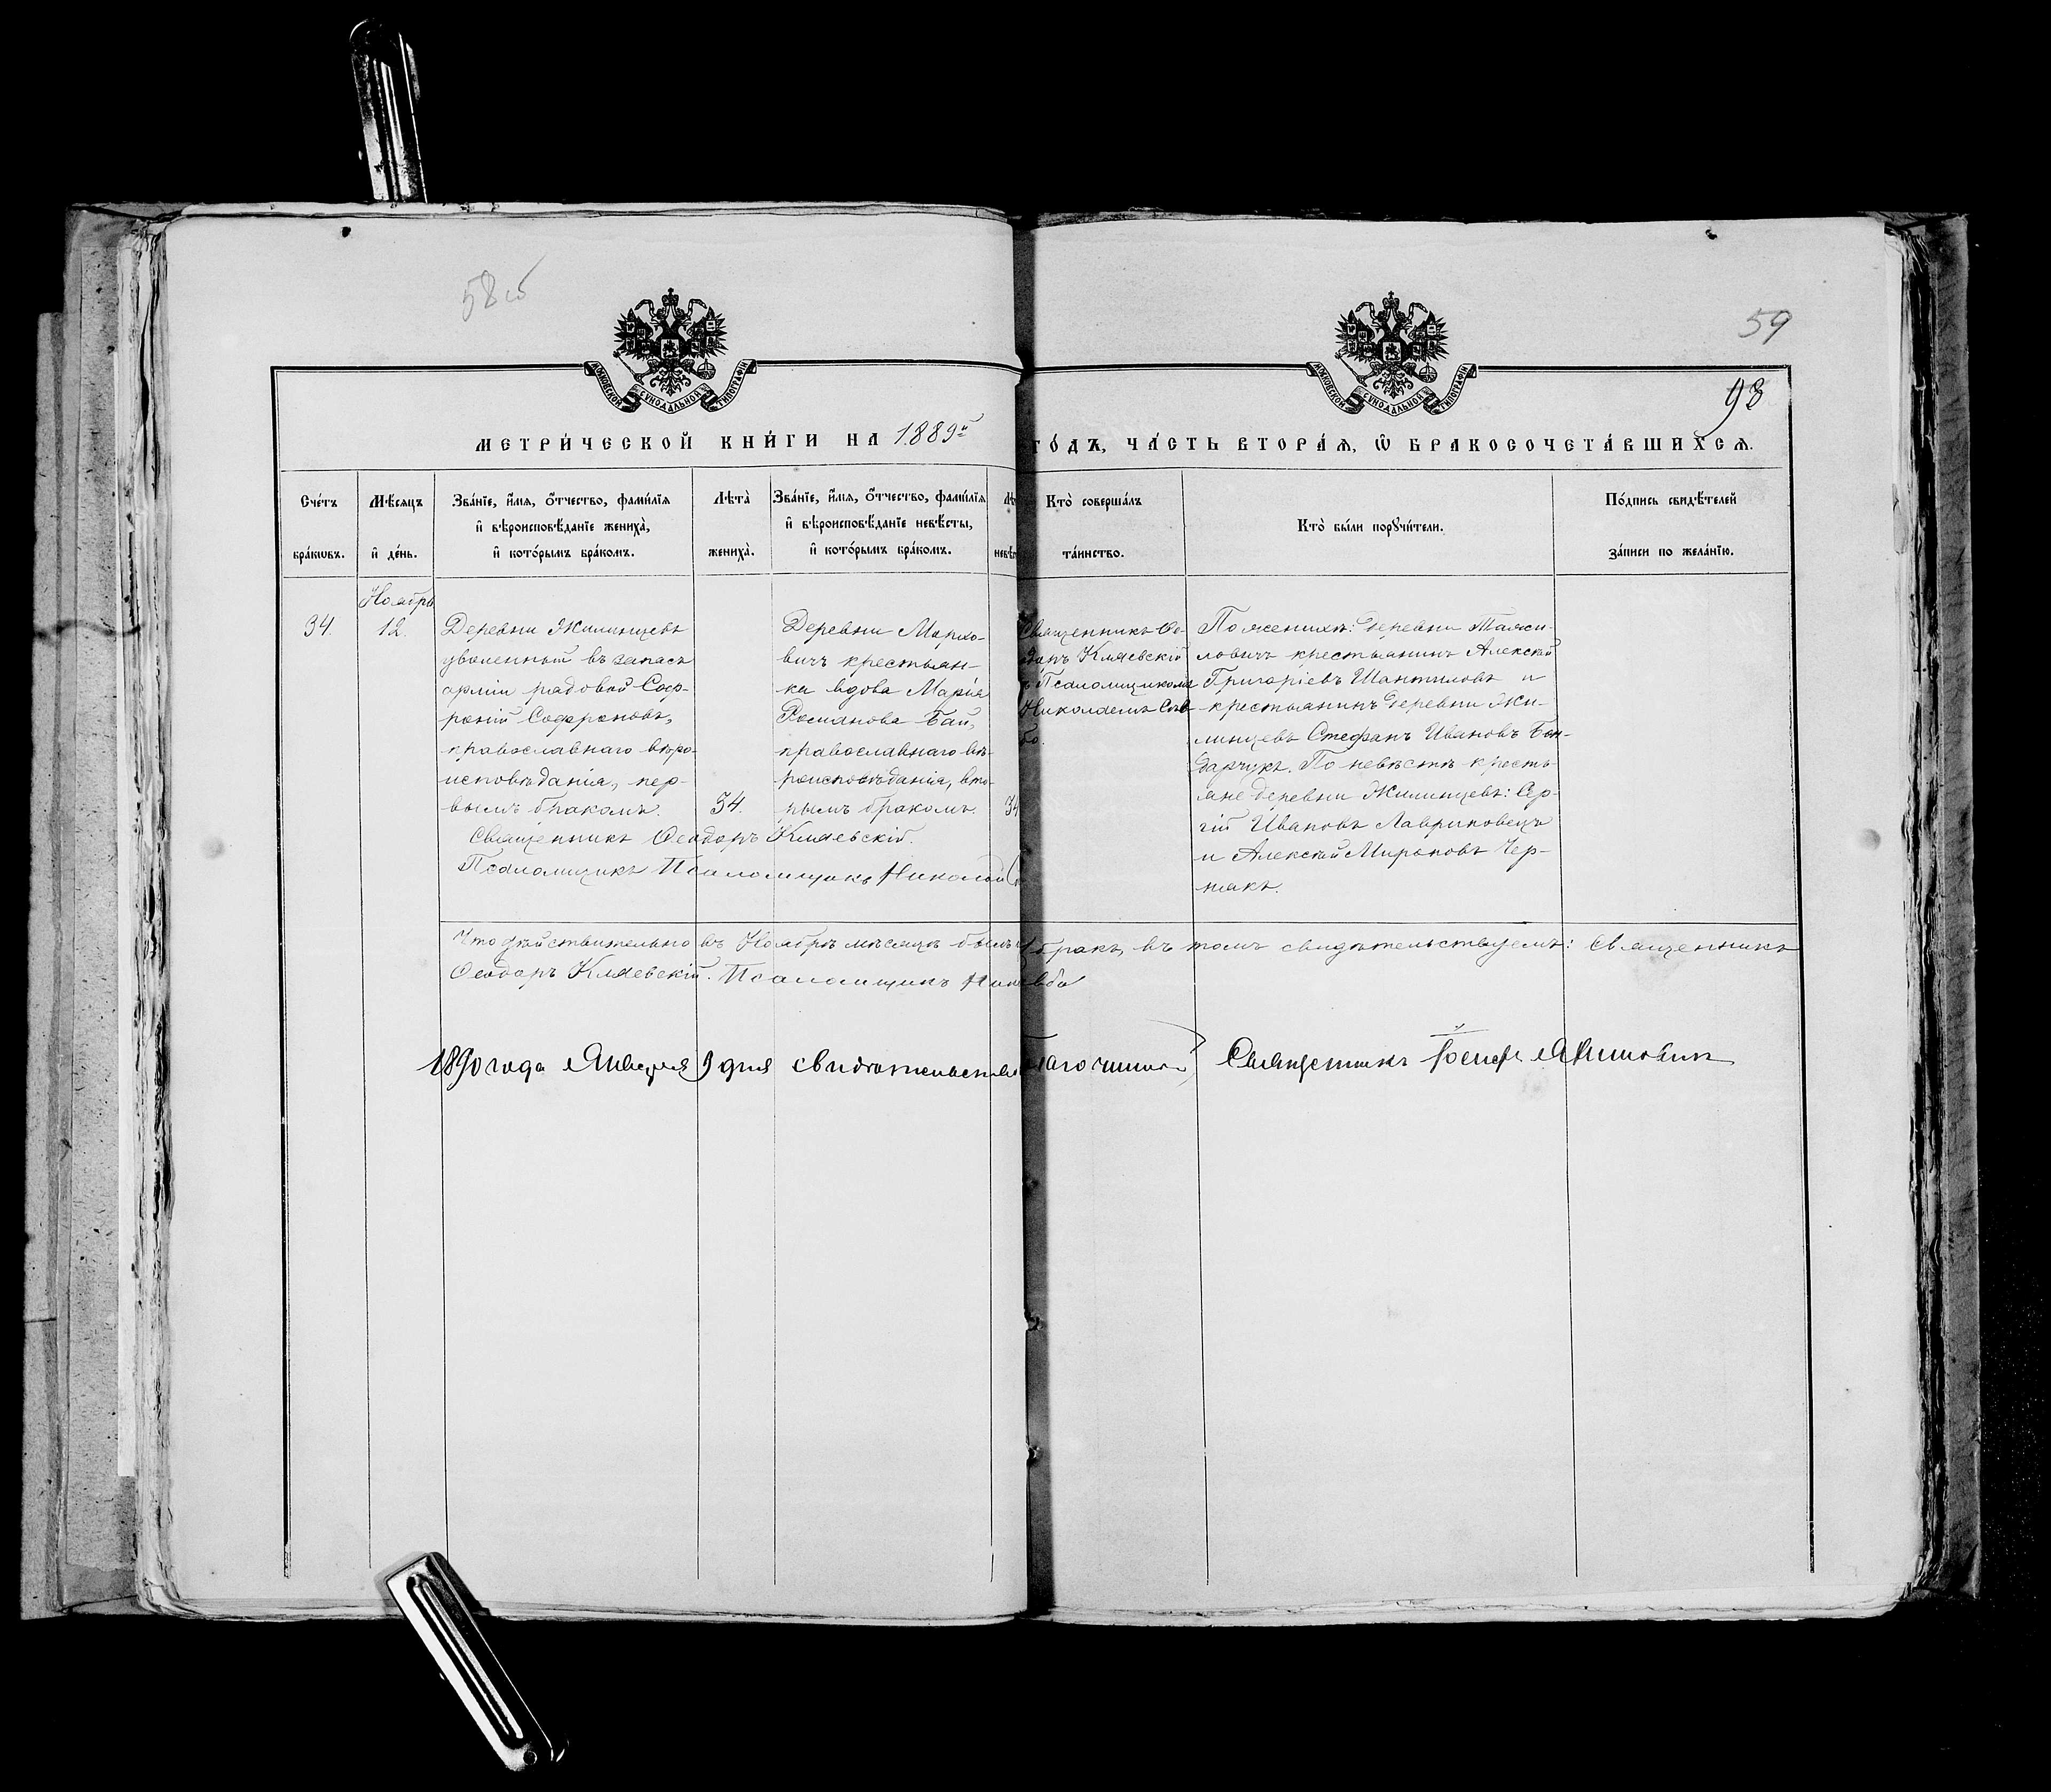 58об
59
98
МОСКОВСКОЙ СѴНОДАЛЬНОЙ ТИПОГРАФІИ
МОСКОВСКОЙ СѴНОДАЛЬНОЙ ТИПОГРАФІИ
МЕТРИ́ЧЕСКОЙ КНИ́ГИ НА 1889й ГО́ДЪ, ЧА́СТЬ ВТОРА́Ѧ, Ѽ БРАКОСОЧЕТА́ВШИХСѦ.
Сче́тъ бра́кѡвъ.
Мѣ́сяцъ и҆ де́нь.
Зва́нїе, и҆́мя, ѻ҆́тчество, фами́лїя
и҆ вѣроисповѣ́данїе жениха̀,
и҆ кото́рымъ бра́комъ.
Лѣта̀ жениха̀.
Зва́нїе, и҆́мя, ѻ҆́тчество, фами́лїя
и҆ вѣроисповѣ́данїе невѣ́сты,
и҆ кото́рымъ бра́комъ.
Кто̀ соверша́лъ
та́инство.
Кто̀ бы́ли порꙋчи́тели.
По́дпись свидѣ́телей
за́писи по жела́нїю.
Ноябрь
34.
12.
Деревни Жилинцевъ
уволенный въ запасъ
арміи рядовой Соф-
роній Софроновъ,
православнаго вѣро-
исповѣданія, пер-
вымъ бракомъ.
34.
Деревни Мархо-
вичъ крестьян-
ка вдова Марія
Романова Бай,
православнаго вѣ-
роисповѣданія, вто-
рымъ бракомъ.
34
Священникъ Ѳе-
одоръ Кляевскій
съ Псаломщикомъ
Николаемъ
бо.
По женихѣ: деревни
ловичъ крестьянинъ Алексѣй
Григоріевъ Шантиловъ и
крестьянинъ деревни Жи-
линцевъ Стефанъ Ивановъ Бон-
дарчукъ. По невѣстѣ кресть-
яне деревни Жилинцевъ: Сер-
гій Ивановъ Лавриновецъ
и Алексѣй Мироновъ Чер-
някъ.
Священникъ Ѳеодоръ Кляевскій.
Псаломщикъ Псаломщикъ Николай
Что дѣйствительно въ Ноябрѣ мѣсяцѣ былъ 1 бракъ, въ томъ свидѣтельствуемъ: Священникъ
Ѳеодоръ Кляевскій. Псаломщикъ
1890 года Января 9 дня Священникъ